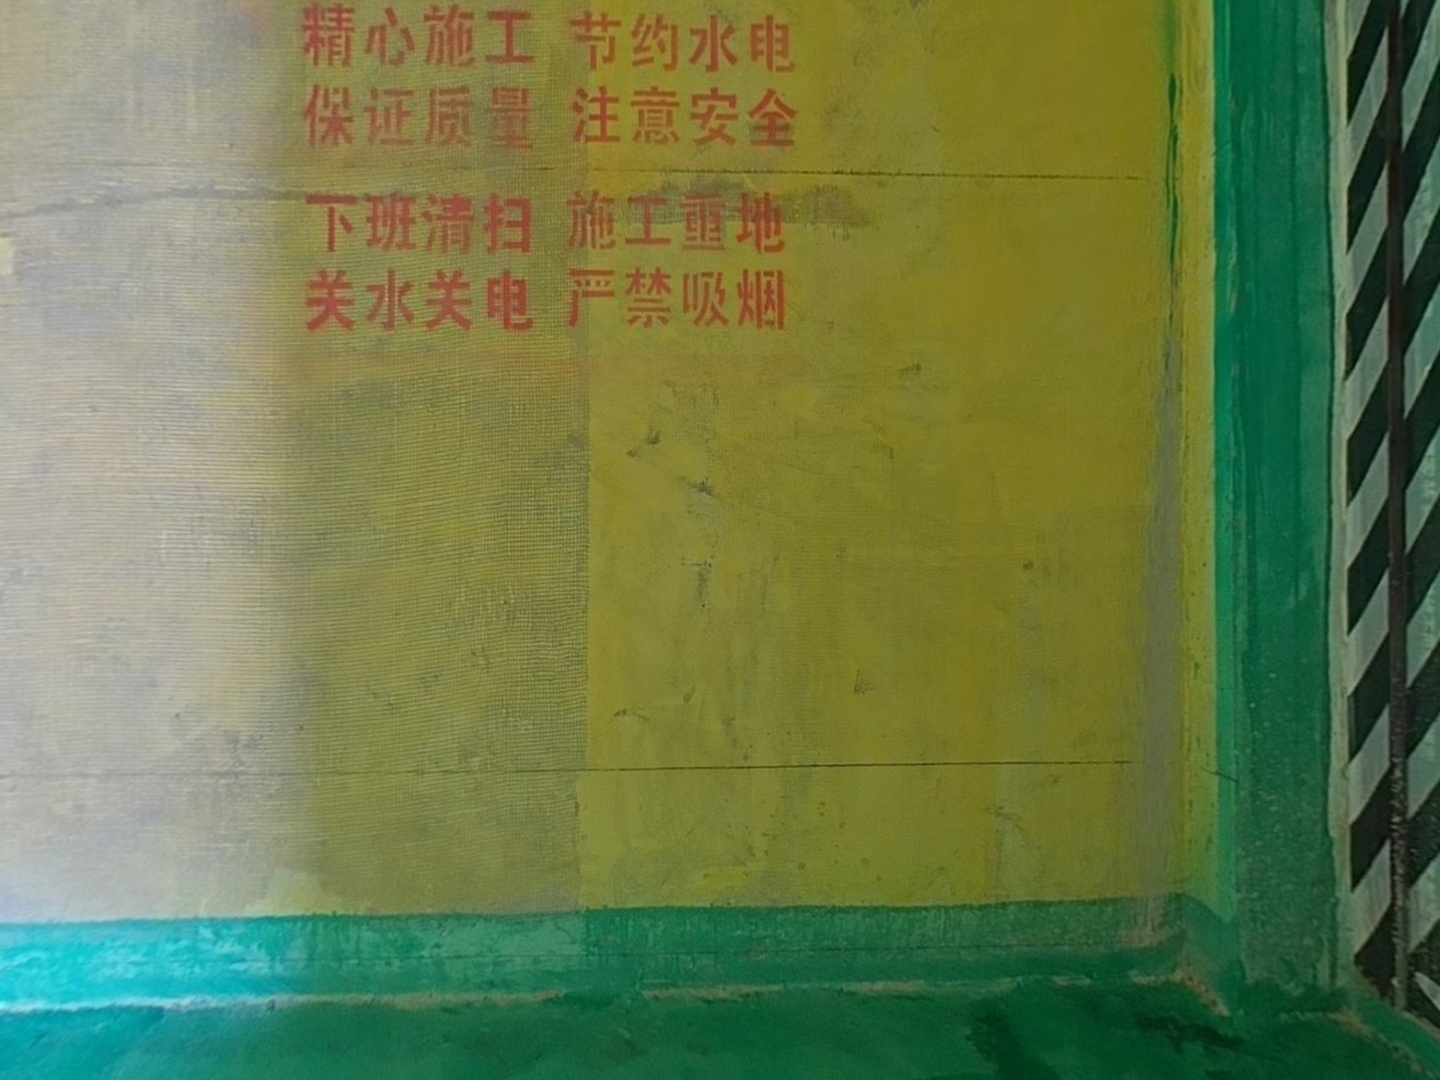 精心施工 节约水电
保证质量 注意安全
下班清扫 施工重地
关水关电 严禁吸烟